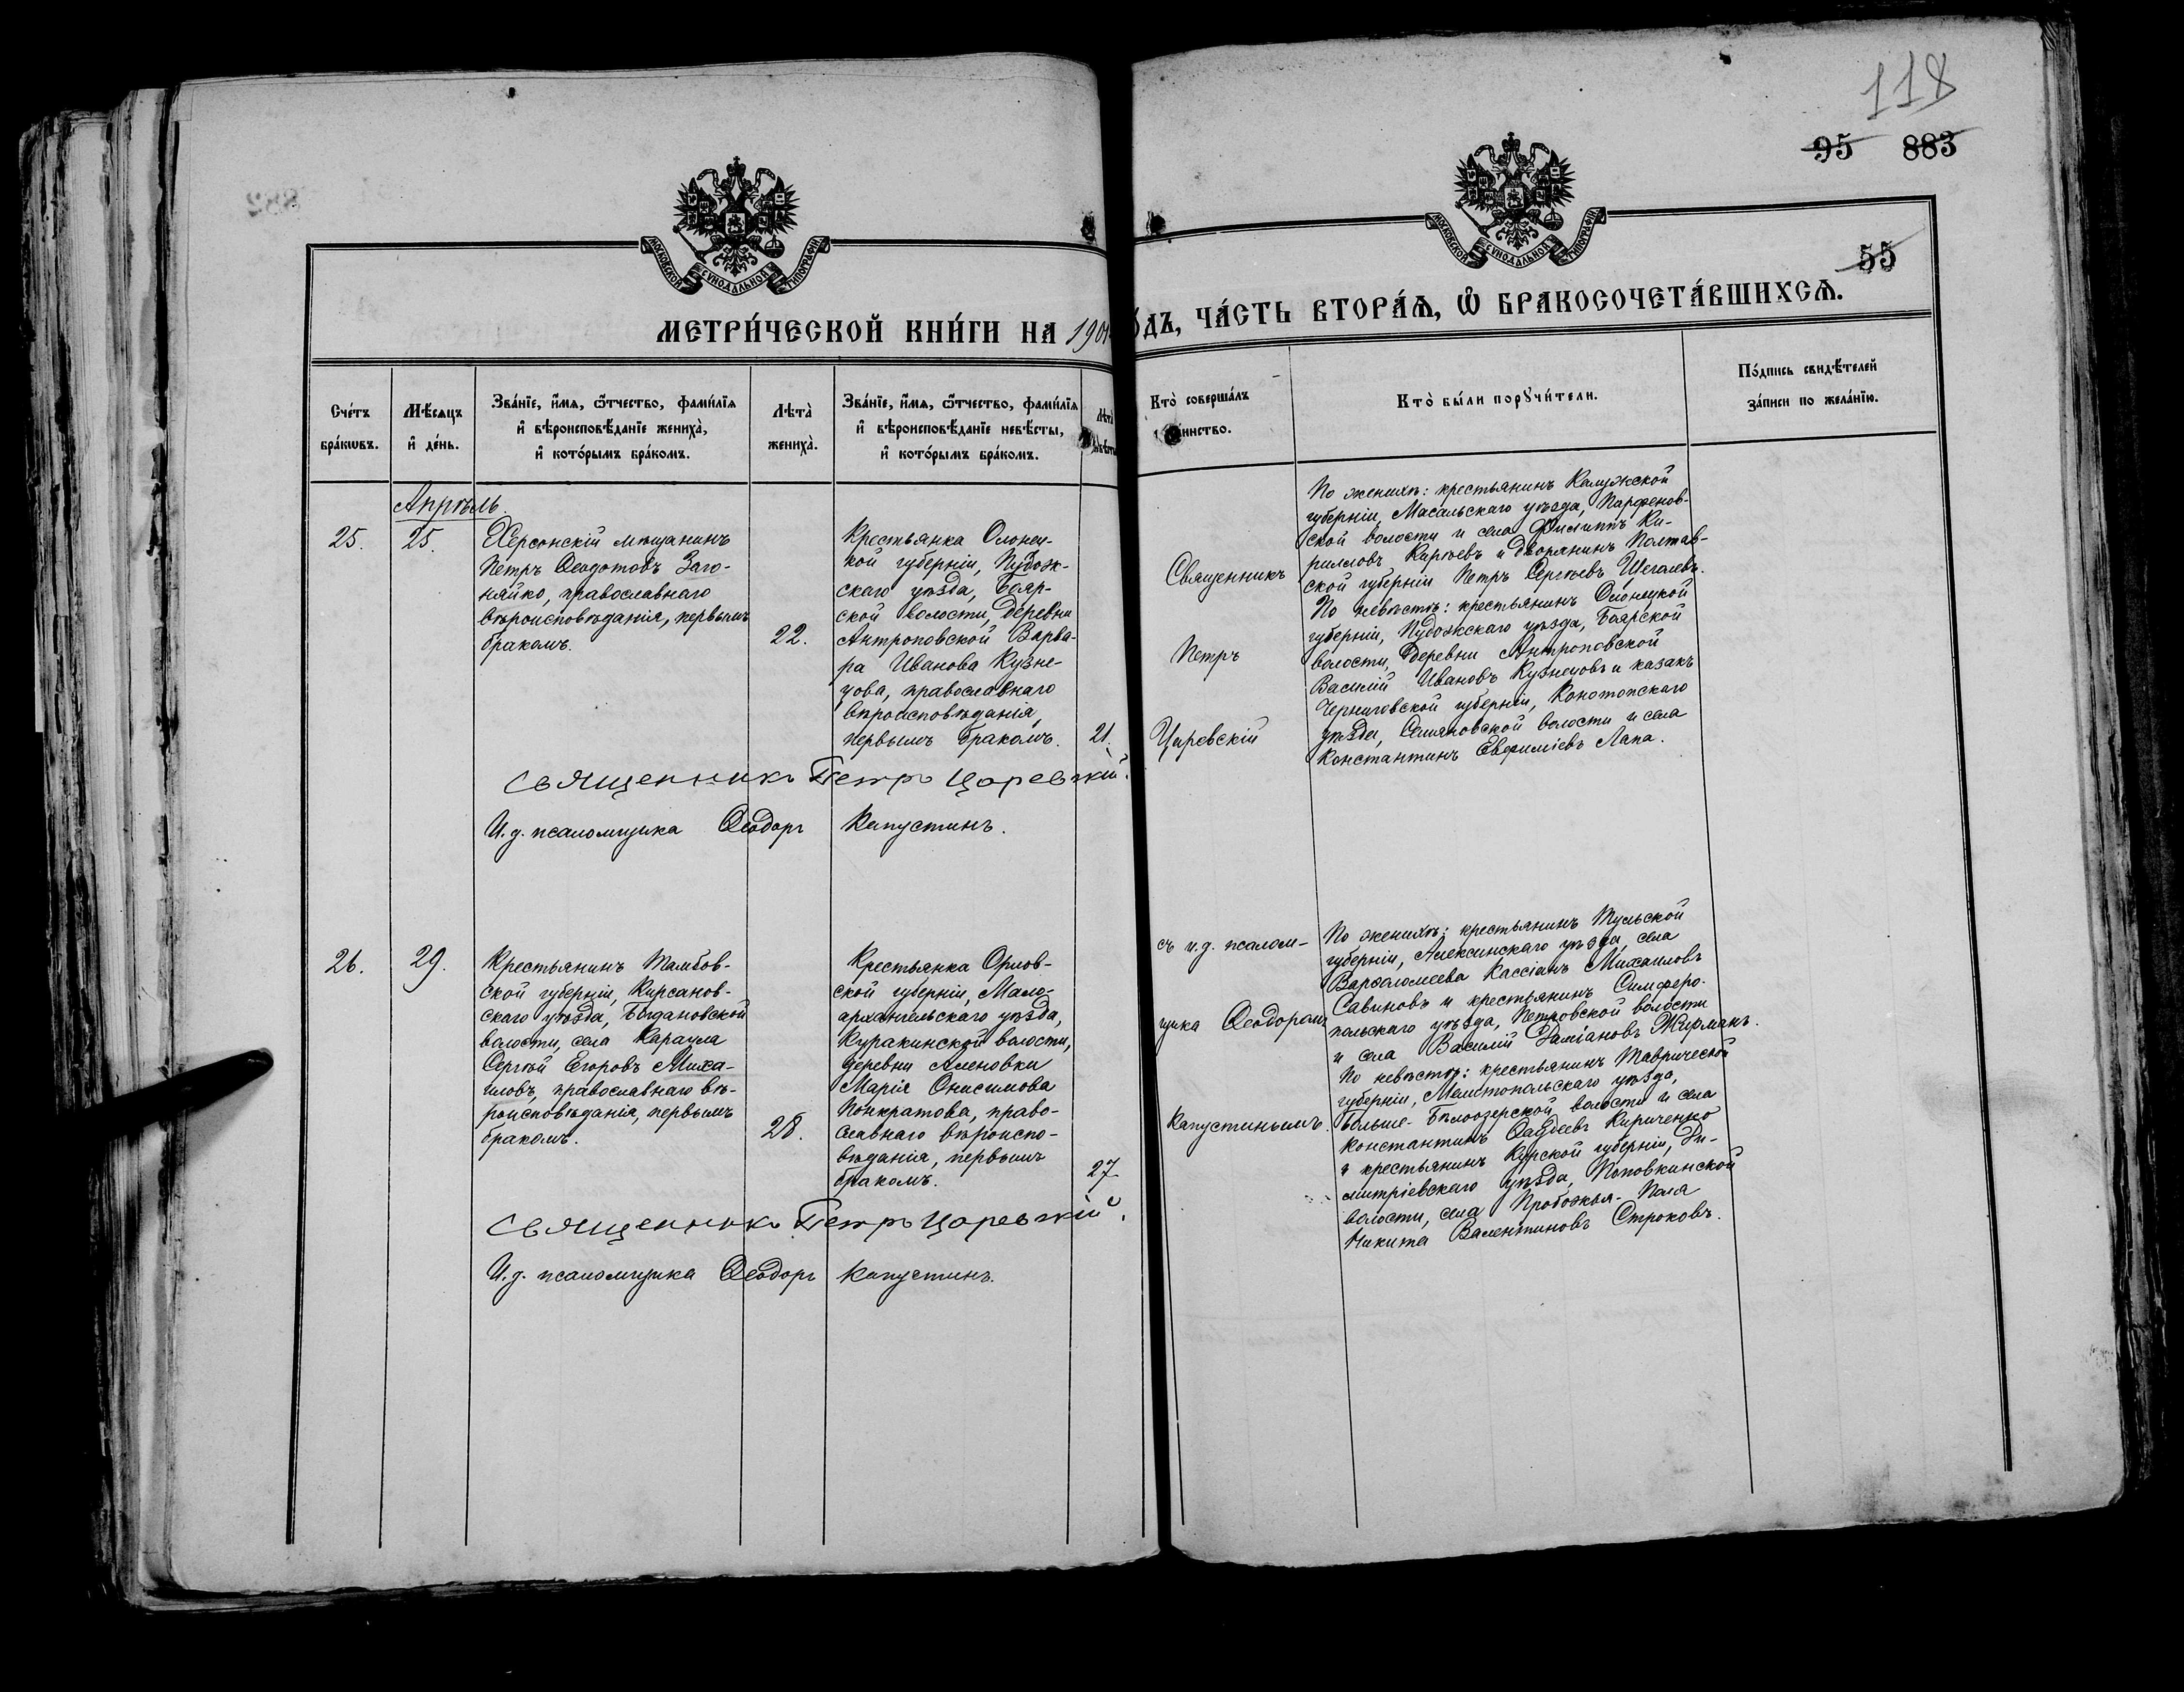 118
95 883
55
МОСКОВСКОЙ СѴНОДАЛЬНОЙ ТИПОГРАФІИ
МОСКОВСКОЙ СѴНОДАЛЬНОЙ ТИПОГРАФІИ
МЕТРИ́ЧЕСКОЙ КНИ́ГИ НА 190
ДЪ, ЧА́СТЬ ВТОРА́Ѧ, Ѽ БРАКОСОЧЕТА́ВШИХСѦ.
Сче́тъ
бра́кѡвъ.
Мѣ́сѧцъ
и҆ де́нь.
Зва́нїе, и҆́мѧ, ѻ҆́тчество, фами́лїѧ
и҆ вѣроисповѣ́данїе жениха̀,
и҆ кото́рымъ бра́комъ.
Лѣта̀
жениха̀.
Зва́нїе, и҆́мѧ, ѻ҆́тчество, фами́лїѧ
и҆ вѣроисповѣ́данїе невѣ́сты,
и҆ кото́рымъ бра́комъ.
Лѣта̀
Кто̀ соверша́лъ
инство.
Кто̀ бы́ли порꙋчи́тели.
По́дпись свидѣ́телей
за́писи по жела́нїю.
Апрѣль.
25.
25.
Херсонскій мѣщанинъ
Петръ Ѳеодотовъ Заго-
няйко, православнаго
вѣроисповѣданія, первымъ
бракомъ.
22.
Крестьянка Олонец-
кой губерніи, Пудож-
скаго уѣзда, Бояр-
ской волости, деревни
Антроповской Варва-
ра Иванова Кузне-
цова, православнаго
вѣроисповѣданія,
первымъ бракомъ.
21.
Священникъ
Петръ
Царевскій
По женихѣ: крестьянинъ Калужской
губерніи, Масальскаго уѣзда, Парфенов-
ской волости и села Филиппъ Ки-
рилловъ Киреевъ и дворянинъ Полтав-
ской губерніи Петръ Сергѣевъ Щеголевъ.
По невѣстѣ: крестьянинъ Олонецкой
губерніи, Пудожскаго уѣзда, Боярской
волости, деревни Антроповской
Василій Ивановъ Кузнецовъ и казакъ
Черниговской губерніи, Конотопскаго
уѣзда, волости и села
Константинъ Евфиміевъ Лапа.
Священникъ Петръ Царевскій.
И.д. псаломщика Ѳеодоръ Капустинъ.
26.
29.
Крестьянинъ Тамбов-
ской губерніи, Кирсанов-
скаго уѣзда, Богдановской
волости, села Караула
Сергѣй Егоровъ Миха-
иловъ, православнаго вѣ-
роисповѣданія, первымъ
бракомъ.
28.
Крестьянка Орлов-
ской губерніи, Мало-
архангельскаго уѣзда,
Куракинской волости,
деревни Аленовки
Марія Онисимова
Понкратова, право-
славнаго вѣроиспо-
вѣданія, первымъ
бракомъ.
27
съ и.д. псалом-
щика Ѳеодоромъ
Капустинымъ.
По женихѣ: крестьянинъ Тульской
губерніи, Алексинскаго уѣзда, села
Варфоломеева Кассіанъ Михаиловъ
Савиновъ и крестьянинъ Симферо-
польскаго уѣзда, Петровской волости
и села Василій Даміановъ Жирманъ.
По невѣстѣ: крестьянинъ Таврической
губерніи, Мелитопольскаго уѣзда,
Больше-Бѣлоозерской волости и села
Константинъ Ѳаддеевъ Кириченко
и крестьянинъ Курской губерніи, Ди-
митріевскаго уѣзда, Поповкинской
волости, села Пробожья-Поля
Никита Валентиновъ Строковъ.
Священникъ Петръ Царевскій.
И.д. псаломщика Ѳеодоръ Капустинъ.